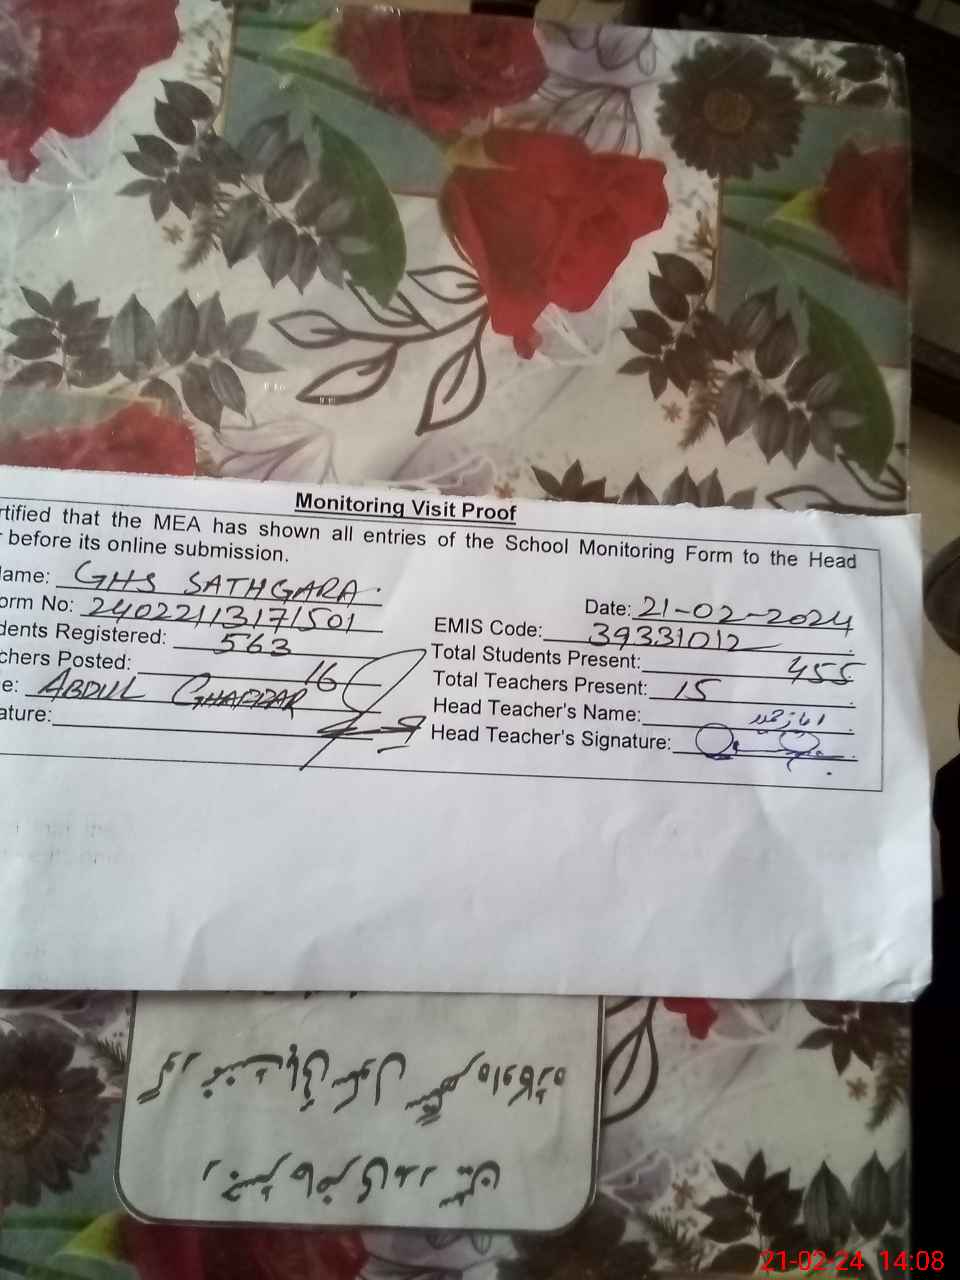 Monitoring Visit Proof
rtified that the MEA has shown all entries of the School Monitoring Form to the Head
r before its online submission.
Name: GHS SATHGARA
Date: 21-02-2024
orm No: 24022113171501
EMIS Code: 39331012
dents Registered: 563
Total Students Present: 455
chers Posted: 16
Total Teachers Present: 15
e: ABDUL GHAFFAR
Head Teacher's Name:
ature:
Head Teacher's Signature:
21-02-24 14:08